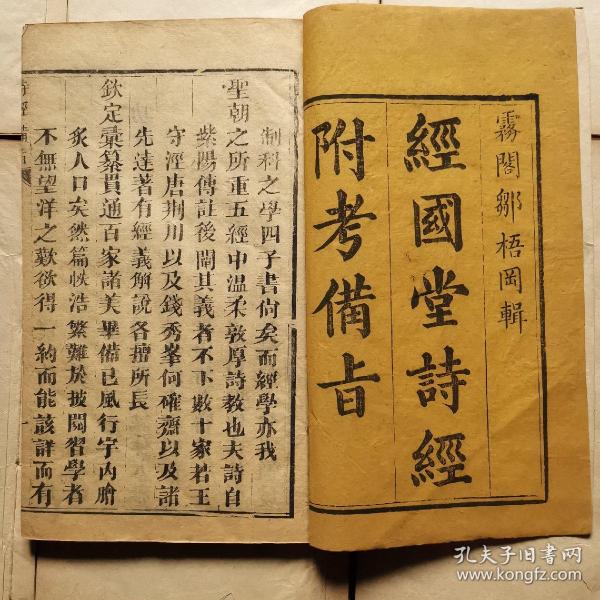 霧閣鄒梧岡輯
經國堂詩經
附考備旨
制科之學四子書尚矣而經學亦我
聖朝之所重五經中溫柔敦厚詩教也夫詩自
紫陽傳註後闡其義者不下數十家若王
守溪唐荊川以及錢秀峯何確齋以及諸
先達著有經義解說各擅所長
欽定彙纂貫通百家諸美畢備已風行宇內膾
炙人口矣然篇帙浩繁難於披閱習學者
不無望洋之歎欲得一約而能該詳而有
孔夫子旧书网
www.kongfz.com